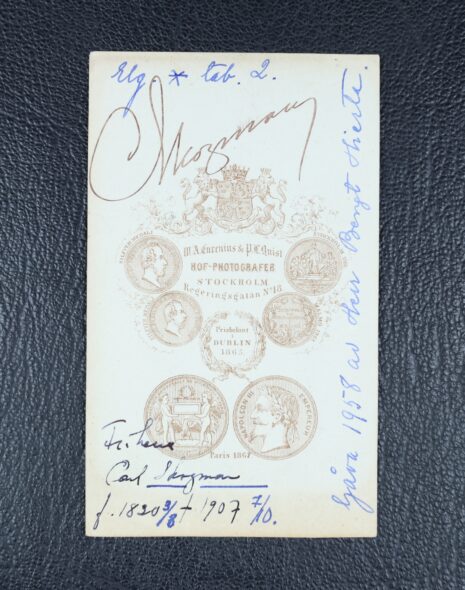 Elg. * tab. 2.
C Skogman
W. A. Eurenius & P. L. Quist
HOF-PHOTOGRAFER
STOCKHOLM
Regeringsgatan Nº 18
Prisbelönt
DUBLIN
1865
NAPOLEON III EMPEREUR
Paris 1867
Friherre
Carl Skogman
f. 1820 3/8 † 1907 7/10.
Gåva 1958 av Herr Bengt Hierta.